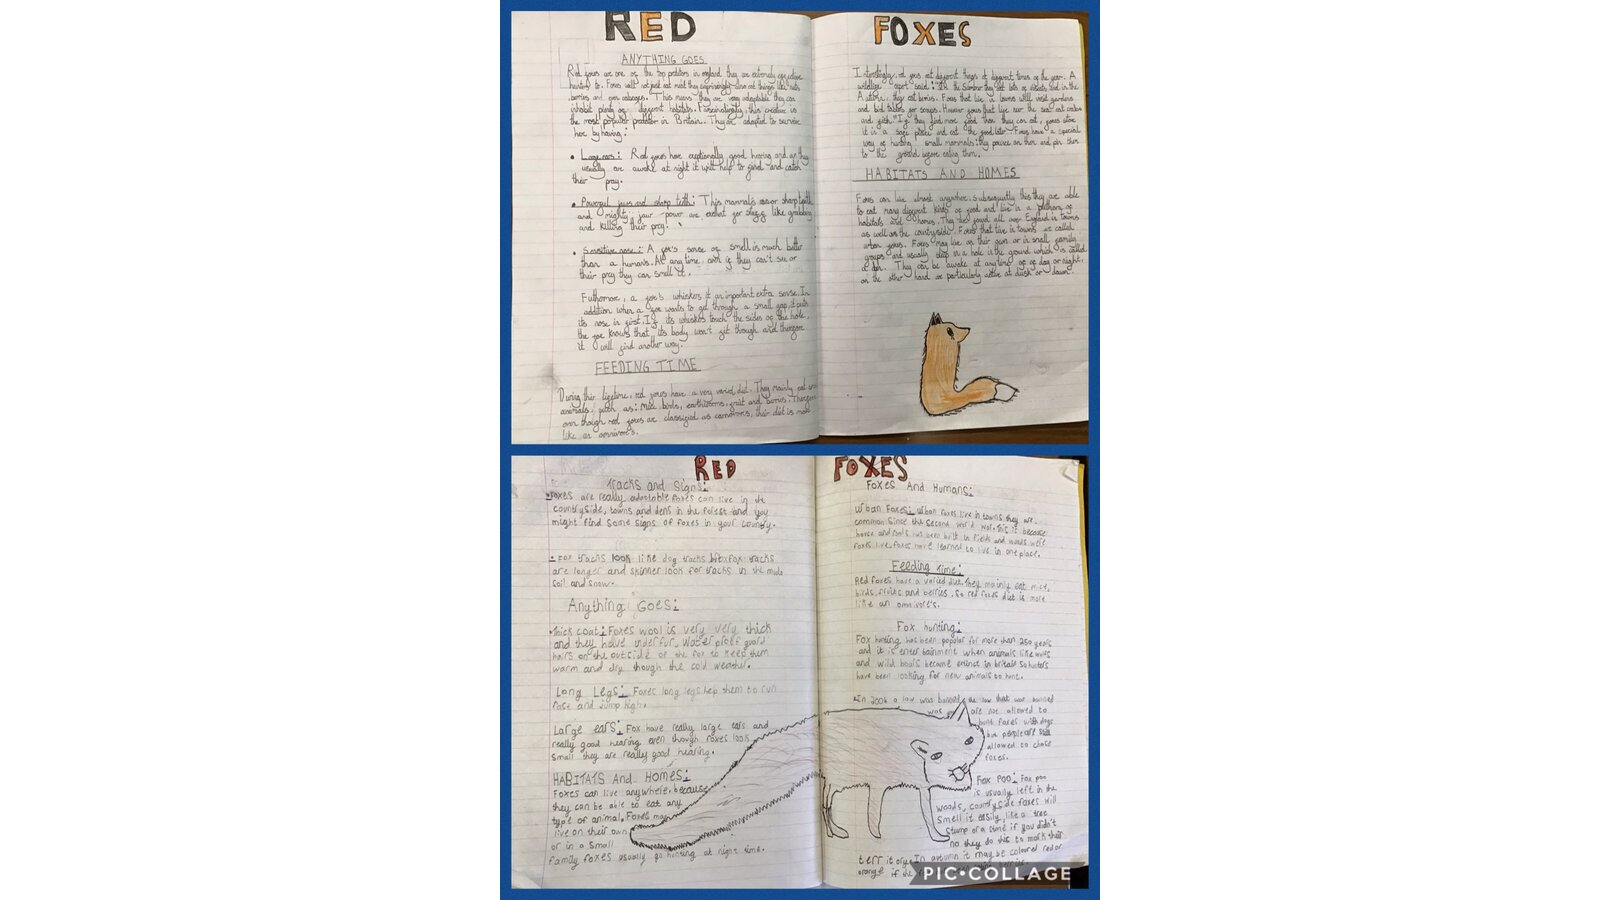 RED FOXES
ANYTHING GOES
Red foxes are one of the top predators in england they are extremely effective
hunting to. Foxes will not just eat meat they surprisingly also eat things like nuts
berries and even cabbages. This means they are very adaptable they can
inhabit plenty of different habitats. Fascinatingly, this creature is
the most popular predator in Britain. They are adapted to survive
here by having:
• Large ears: Red foxes have exeptionally good hearing and as they
usually are awake at night it will help to find and catch
their prey.
• Powerful jaws and sharp teeth: This mammal's razor sharp teeth
and mighty jaw-power are excellent for things like grabbing
and killing their prey.
• Sensitive nose: A fox's sense of smell is much better
than a humans. At any time, even if they can't see or
their prey they can smell it.
Futhormore, a fox's whiskers is an important extra sense. In
addition when a fox wants to get through a small gap, it puts
its nose in first. If its whiskers touch the sides of the hole,
the fox knows that its body won't get through and therefore
it will find another way.
FEEDING TIME
During their lifetime, red foxes have a very varied diet. They mainly eat
animals, such as: mice, birds, earthworms, fruit and berries. Therefore
even though red foxes are classified as carnivores, their diet is more
like an omnivore's.
Interestingly, red foxes eat different things at different times of the year. A
wildlife expert said: "In the Summer they eat lots of insects and in the
Autumn, they eat berries. Foxes that live in towns will visit gardens
and bird tables for scraps. However foxes that live near the sea eat crabs
and fish." If they find more food than they can eat, foxes store
it in a safe place and eat the food later. Foxes have a special
way of hunting small mammals: they pounce on them and pin them
to the ground before eating them.
HABITATS AND HOMES
Foxes can live almost anywhere, subsequently this they are able
to eat many different kinds of food and live in a plethora of
habitats and homes. They are found all over England in towns
as well as the countryside. Foxes that live in towns are called
urban foxes. Foxes may live on their own or in small family
groups and usually sleep in a hole in the ground which is called
a den. They can be awake at anytime of day or night,
on the other hand are particularly active at dusk or dawn.
RED FOXES
Tracks and Signs:
• Foxes are really adaptable foxes can live in the
countryside, towns and dens in the forest and you
might find some signs of foxes in your country.
• Fox tracks look like dog tracks but fox tracks
are longer and skinner look for tracks in the mud
soil and snow.
Anything Goes:
• Thick coat: Foxes wool is very very thick
and they have underfur, waterproof guard
hairs on the outside of the fox to keep them
warm and dry though the cold weather.
Long Legs: Foxes long legs help them to run
fast and jump high.
Large ears: Fox have really large ears and
really good hearing even though foxes look
small they are really good hearing.
HABITATS And HOMES:
Foxes can live anywhere because
they can be able to eat any
type of animal. Foxes may
live on their own
or in a small
family foxes usually go hunting at night time.
Foxes And Humans:
Urban Foxes: urban foxes live in towns they are
common since the second world war. This is because
horse and rods has been built in fields and woods were
foxes live. foxes have learned to live in one place.
Feeding Time:
Red foxes have a varied diet. They mainly eat mice,
birds, fruits and berries. So red foxes diet is more
like an omnivore's.
Fox hunting:
Fox hunting has been popular for more than 250 years
and it is entertainment when animals like wolfs
and wild boars became extinct in britain so hunters
have been looking for new animals to hunt.
• In 2004 a law was banned the law that was banned
was are not allowed to
hunt foxes with dogs
but people are still
allowed to chase
foxes.
Fox Poo: Fox poo
is usually left in the
woods, countryside foxes will
smell it easily, like a tree
stump or a stone if you didn't
no they do this to mark their
territory. In autumn it may be coloured red or
orange if the
PIC•COLLAGE